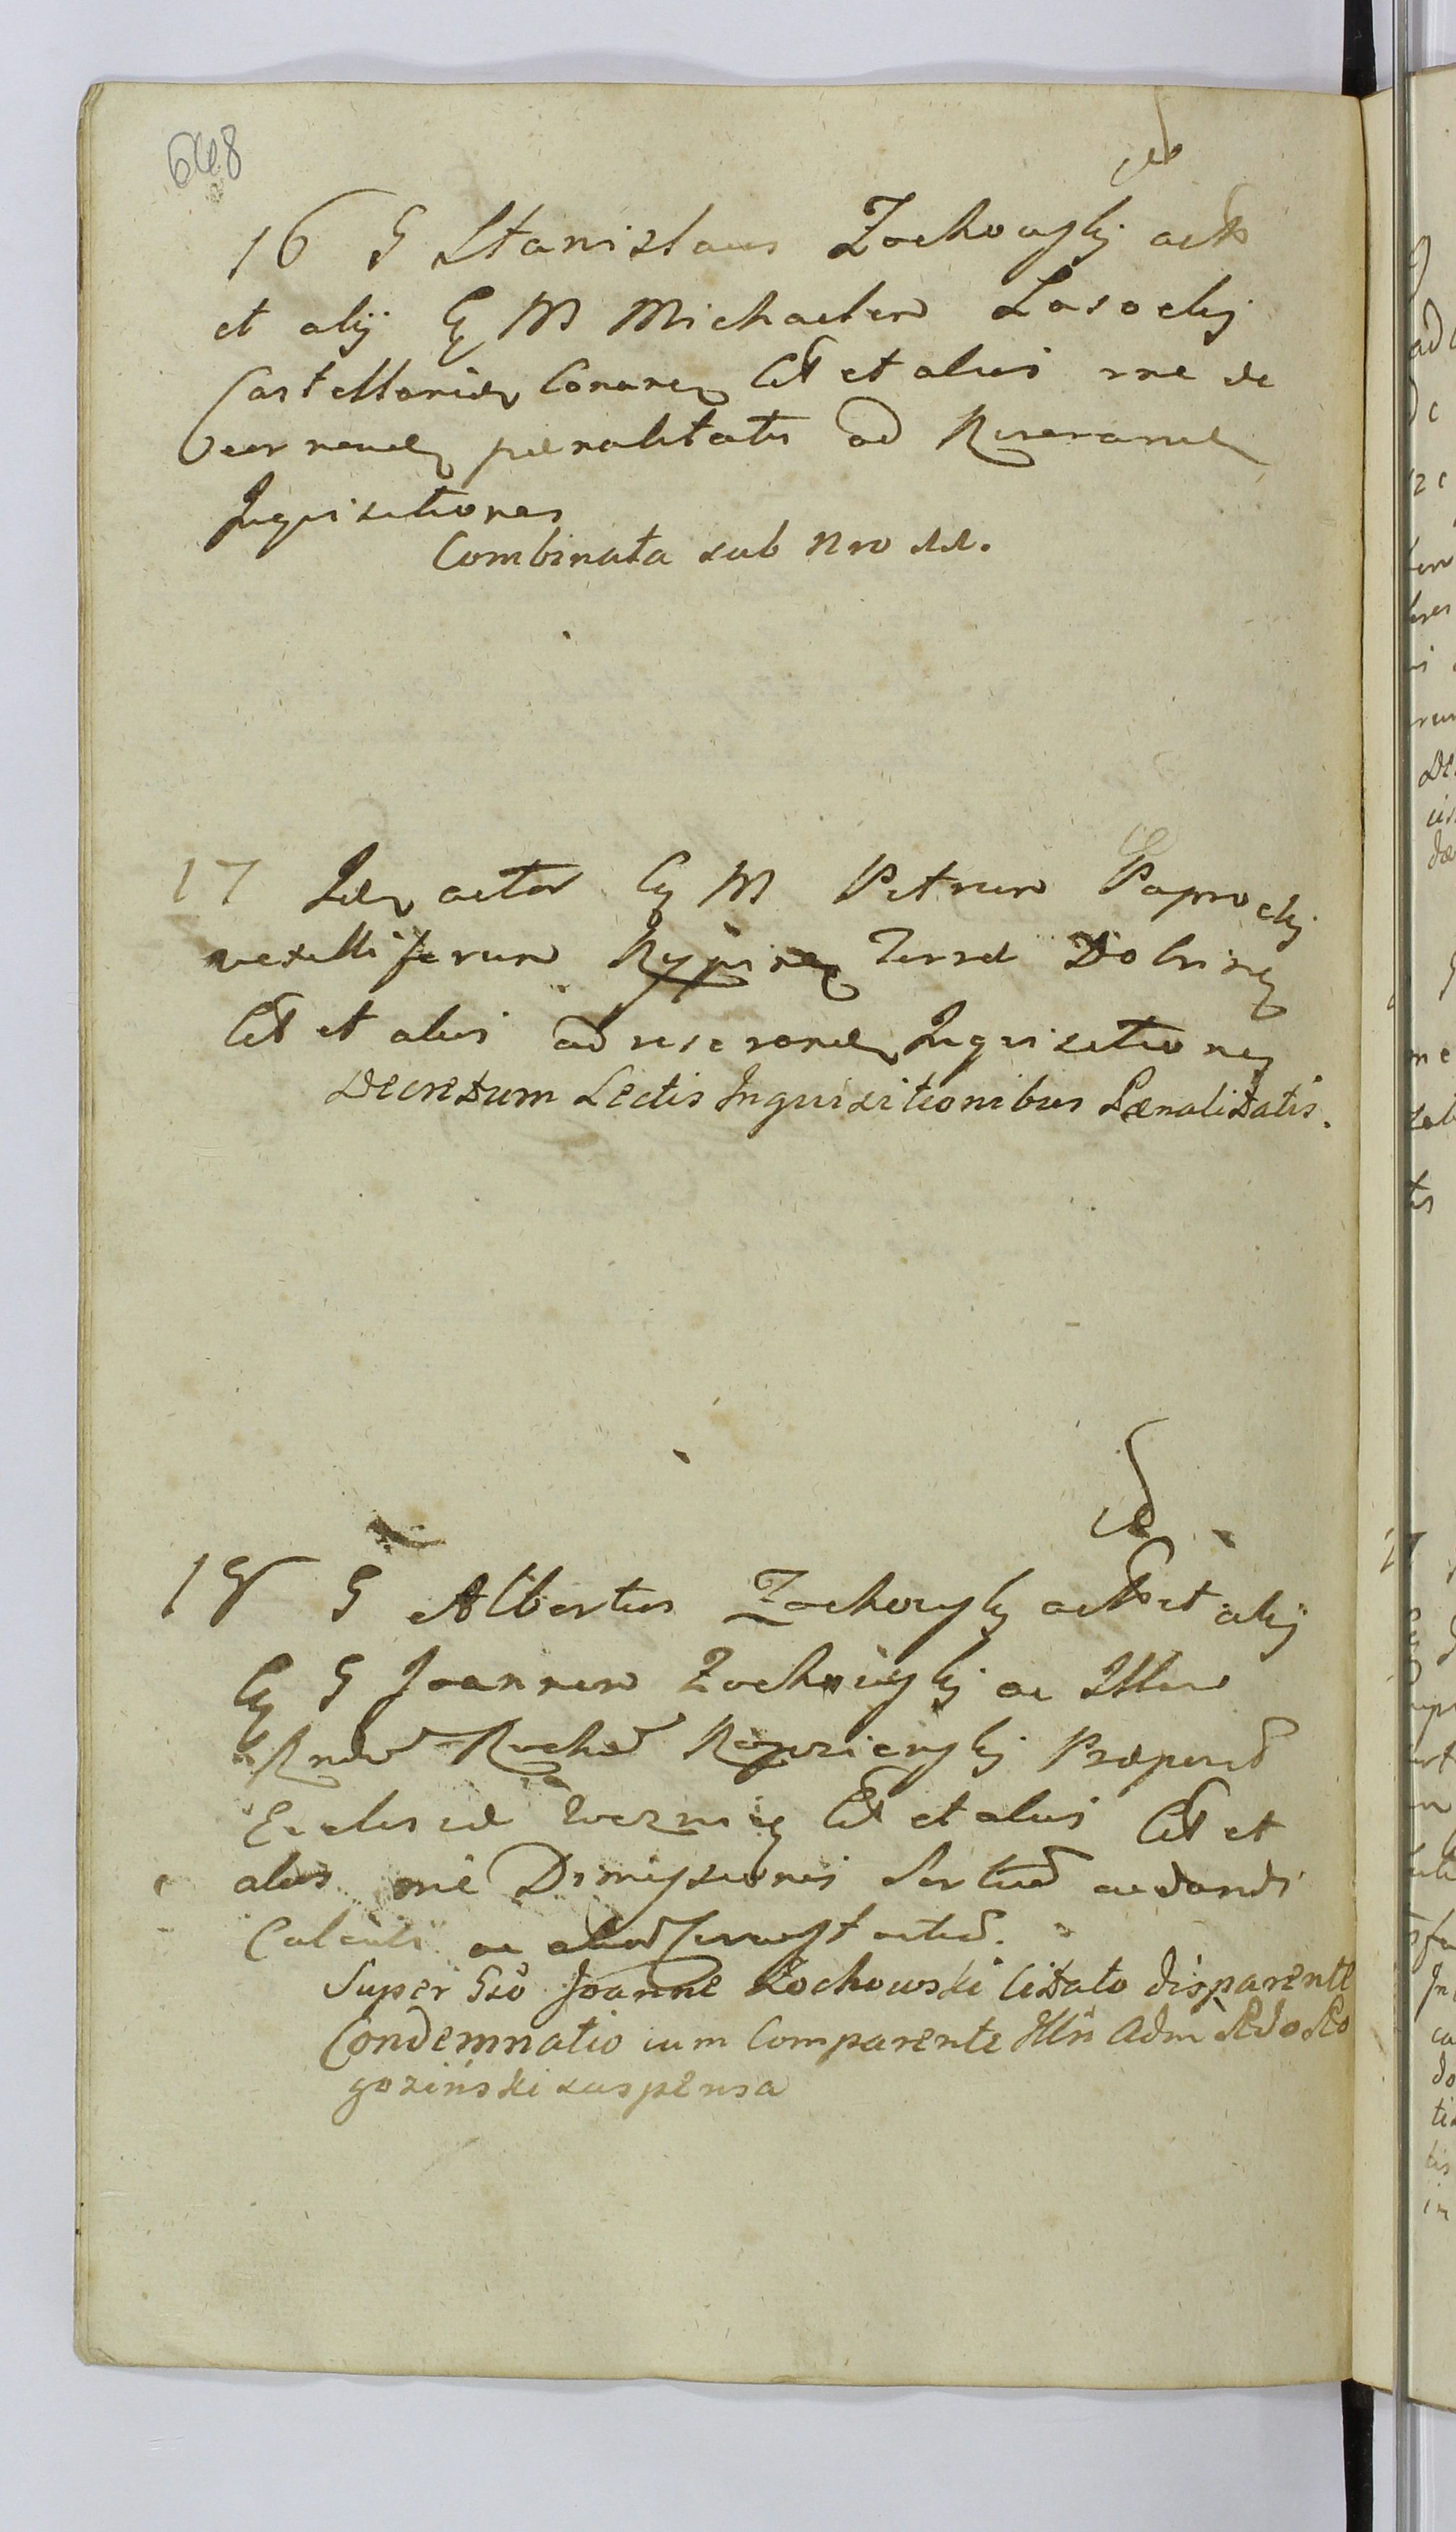 648
16 G Stanislaus Zochowskj act
et alij C M Michaelem Lasockj
Castellanid Conarie Cit et alios rne de
pænalitatis ad Reserand
Inquisitiones
Combinata sub Nro
17 Id actor C M Petrum Paprockj
vexilliferum Rypine Terræ Dobrine
Cit et alios ad reserand Inquisitiones
Decretum Lectis Inquisitionibus Pænalitatis.
18 G Albertus Zochowskj act et alij
C G Joannem Zochowskj ac Illem
Rndm Rochum Rogozienskj Præposit
Ecclesiæ Cit et alios Cit et
alios rne Dimissionis Sortium ac dandi
Calculi ac
Super Gso Joanne Zochowski Citato disparente
Condemnatio cum Comparente Illri Adm Rdo Ro
goziński suspensa